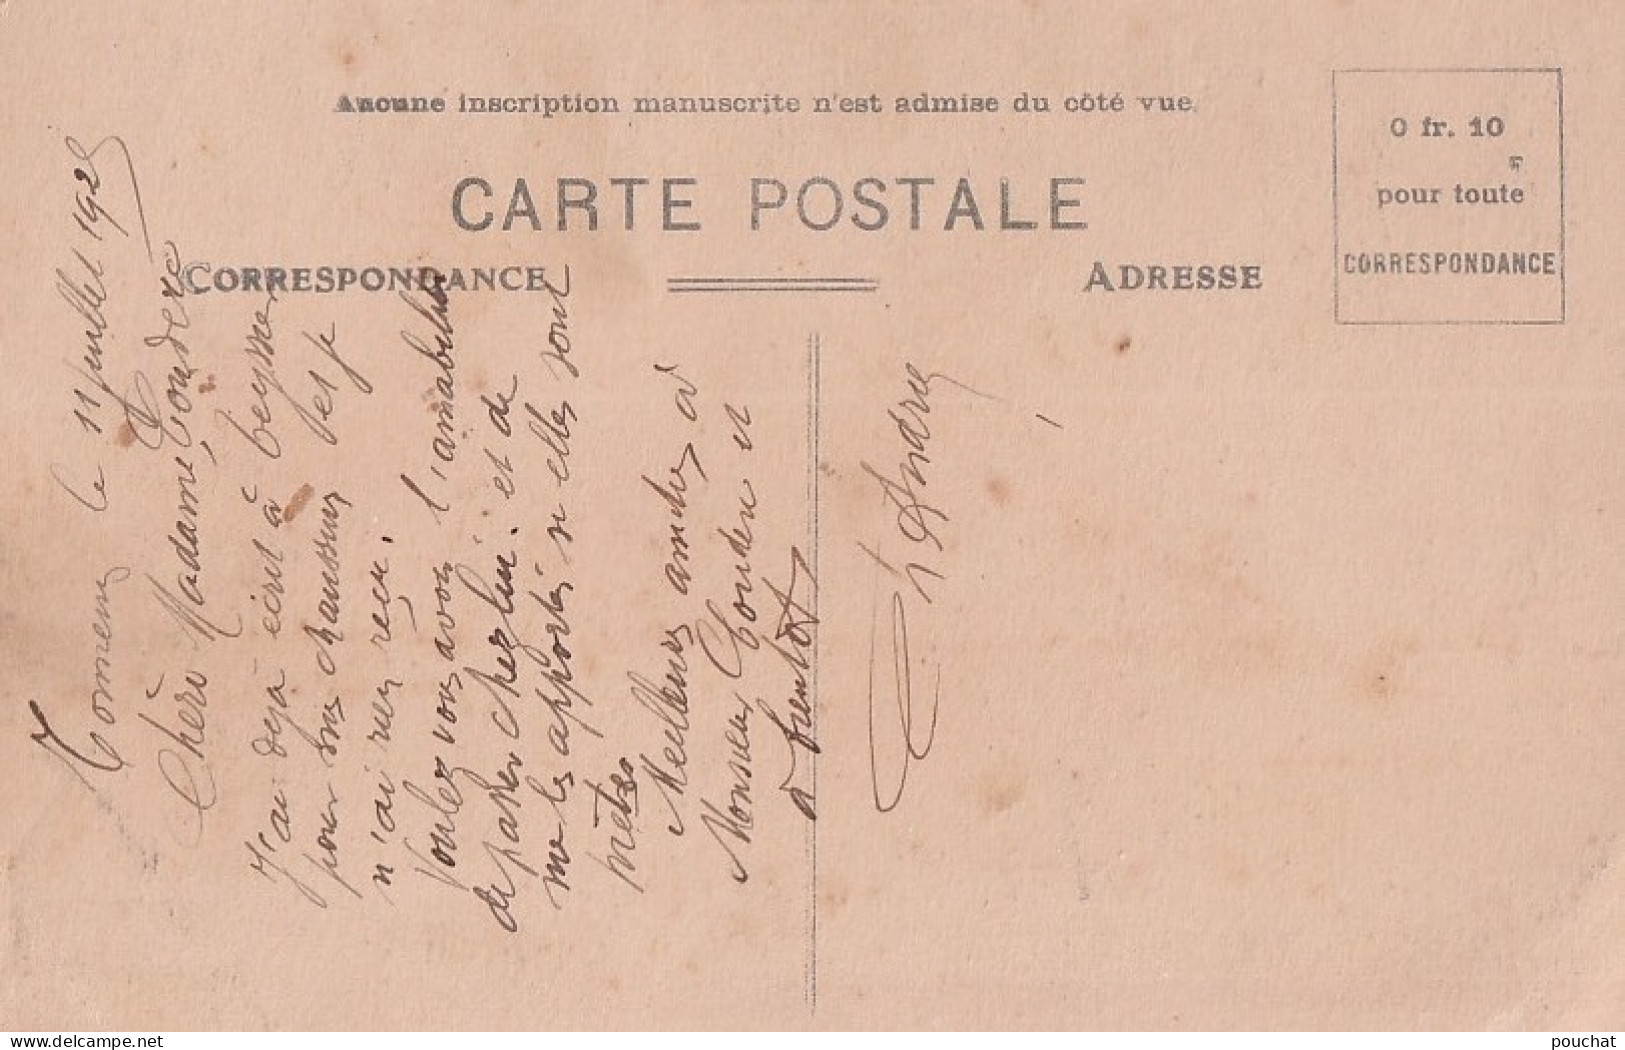 Aucune inscription manuscrite n'est admise du côté vue.
CARTE POSTALE
CORRESPONDANCE
ADRESSE
0 fr. 10
pour toute
CORRESPONDANCE
le 11 juillet 1925
Chère Madame
J'ai déjà écrit à
pour mes chaussures et je
n'ai rien reçu.
Voulez vous avoir l'amabilité
de passer chez lui. et de
me les apporter si elles sont
prêtes
Meilleures amitiés à
Monsieur et
à
André
delcampe.net
pouchat